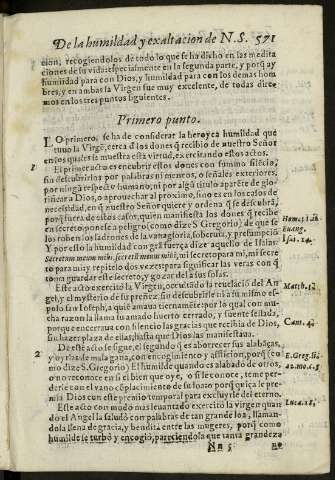 De la humildad y exaltacion de N.S. 571
cion, recogiendolos de todo lo que se ha dicho en las medita
ciones de su vida: especialmente en la segunda parte, y porq̃ ay
humildad para con Dios, y humildad para con los demas hom
bres, y en ambas la Virgen fue muy excelente, de todas dire
mos en los tres puntos siguientes.
Primero punto.
LO primero, se ha de considerar la heroyca humildad que
tuuo la Virgẽ, cerca d̃los dones q̃ recibio de nuestro Señor
en los quales se muestra esta virtud, exercitando estos actos.
1 El primer acto es encubrir estos dones con summo silẽcio,
sin descubrirlos por palabras ni meneos, o señales exteriores,
por ningũ respectv humano, ni por algũ titulo aparẽte de glo-
rificar a Dios, o aprouechar al proximo, sino es en los casos de
necessidad, en q̃ nuestro Señor quiere y ordena q̃ se descubrã,
porq̃ fuera destos casos, quien manifiesta los dones q̃ recibe
en secreto, ponese a peligro (como dize S. Gregorio) de que se
los roben los ladrones de la vanagloria, soberuia, y presumpciõ
Y por esso la humildad con grã fuerça dize aquello de Isaias.
Secretum meum mihi, secretũ meum mihi, mi secreto para mi, mi secre
to para mi, y repitelo dos vezes para significar las veras con q̃
toma guardar este secreto, y gozar del a sus solas.
Este acto exercitó la Virgen, ocultando la reuelaciõ del An
gel, y el mysterio de su preñez, sin descubrirle ni a su mismo es-
poso san Ioseph, a quié amaua tiernamẽte: por lo qual con mu-
cha razon la llama su amado huerto cerrado, y fuente sellada,
porque encerraua con silencio las gracias que recibia de Dios,
sin hazer plaza de ellas, hasta que Dios las manifestaua.
2 De este acto se sigue, el segundo q̃ es aborrecer sus alabãças,
y oyrlas de mala gana, con encogimiento y afflicion, porq̃ (co
mo dize S. Gregorio) El humilde quando es alabado de otros,
o no reconoce en si el bien que oye, o si le conoce, teme per-
derle con el vano cõplazimiento de su loa: o porq̃ quiça le pre mia
Dios con este premio temporal para excluyrle del eterno.
Este acto con modo mas leuantado exercitó la virgen quan-
do el Angel la saludó con palabras de tan grande loa, llaman-
dola llena de gracia, y bendita entre las mugeres, porq̃ como
humilde se turbó y encogió, pareciendola que tanta grandeza
Nn 5 no
Euang.
Isai. 24.
Matth. 1.
Cant. 4.
Luca. 1.